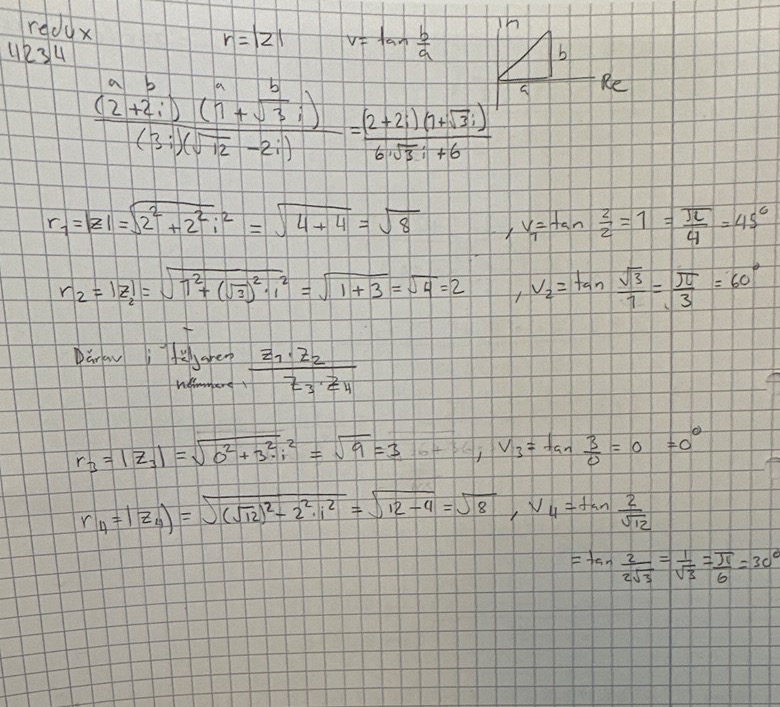 redux
4234
r=|z| v=tan b/a
Im
b
a
Re
a b a b
(2+2i)(1+√3i)/(3i)(√12-2i) = (2+2i)(1+√3i)/6√3i+6
r₁=|z|=√(2²+2²i²) = √(4+4) = √8 , v₁=tan 2/2=1 = π/4 = 45°
r₂=|z₂|=√(1²+(√3)²·i²) = √(1+3) = √4=2 , v₂=tan √3/1 = π/3 = 60°
Därav i täljaren z₁·z₂
nämnare. z₃·z₄
r₃=|z₃|=√(0²+3²·i²) = √9=3 , v₃=tan 3/0 = 0 =0°
r₄=|z₄|=√((√12)²-2²·i²) = √(12-4) = √8 , v₄=tan 2/√12
=tan 2/2√3 = 1/√3 = π/6 = 30°